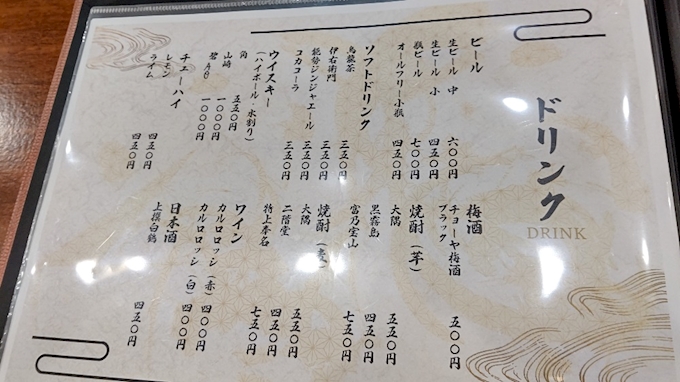 ドリンク
DRINK
ビール
生ビール 中 六〇〇円
生ビール 小 四五〇円
瓶ビール 七〇〇円
オールフリー小瓶 四五〇円
ソフトドリンク
烏龍茶 三五〇円
伊右衛門 三五〇円
能勢ジンジャエール 三五〇円
コカコーラ 三五〇円
ウイスキー
(ハイボール・水割り)
角 五五〇円
山崎 一〇〇〇円
碧Ao 一〇〇〇円
チューハイ
レモン 四五〇円
ライム 四五〇円
梅酒
チョーヤ梅酒
ブラック 五〇〇円
焼酎(芋)
大隅 五五〇円
黒霧島 四五〇円
富乃宝山 七五〇円
焼酎(麦)
大隅 五五〇円
二階堂 四五〇円
特上泰名 七五〇円
ワイン
カルロロッシ(赤) 四〇〇円
カルロロッシ(白) 四〇〇円
日本酒
上撰白鶴 四五〇円